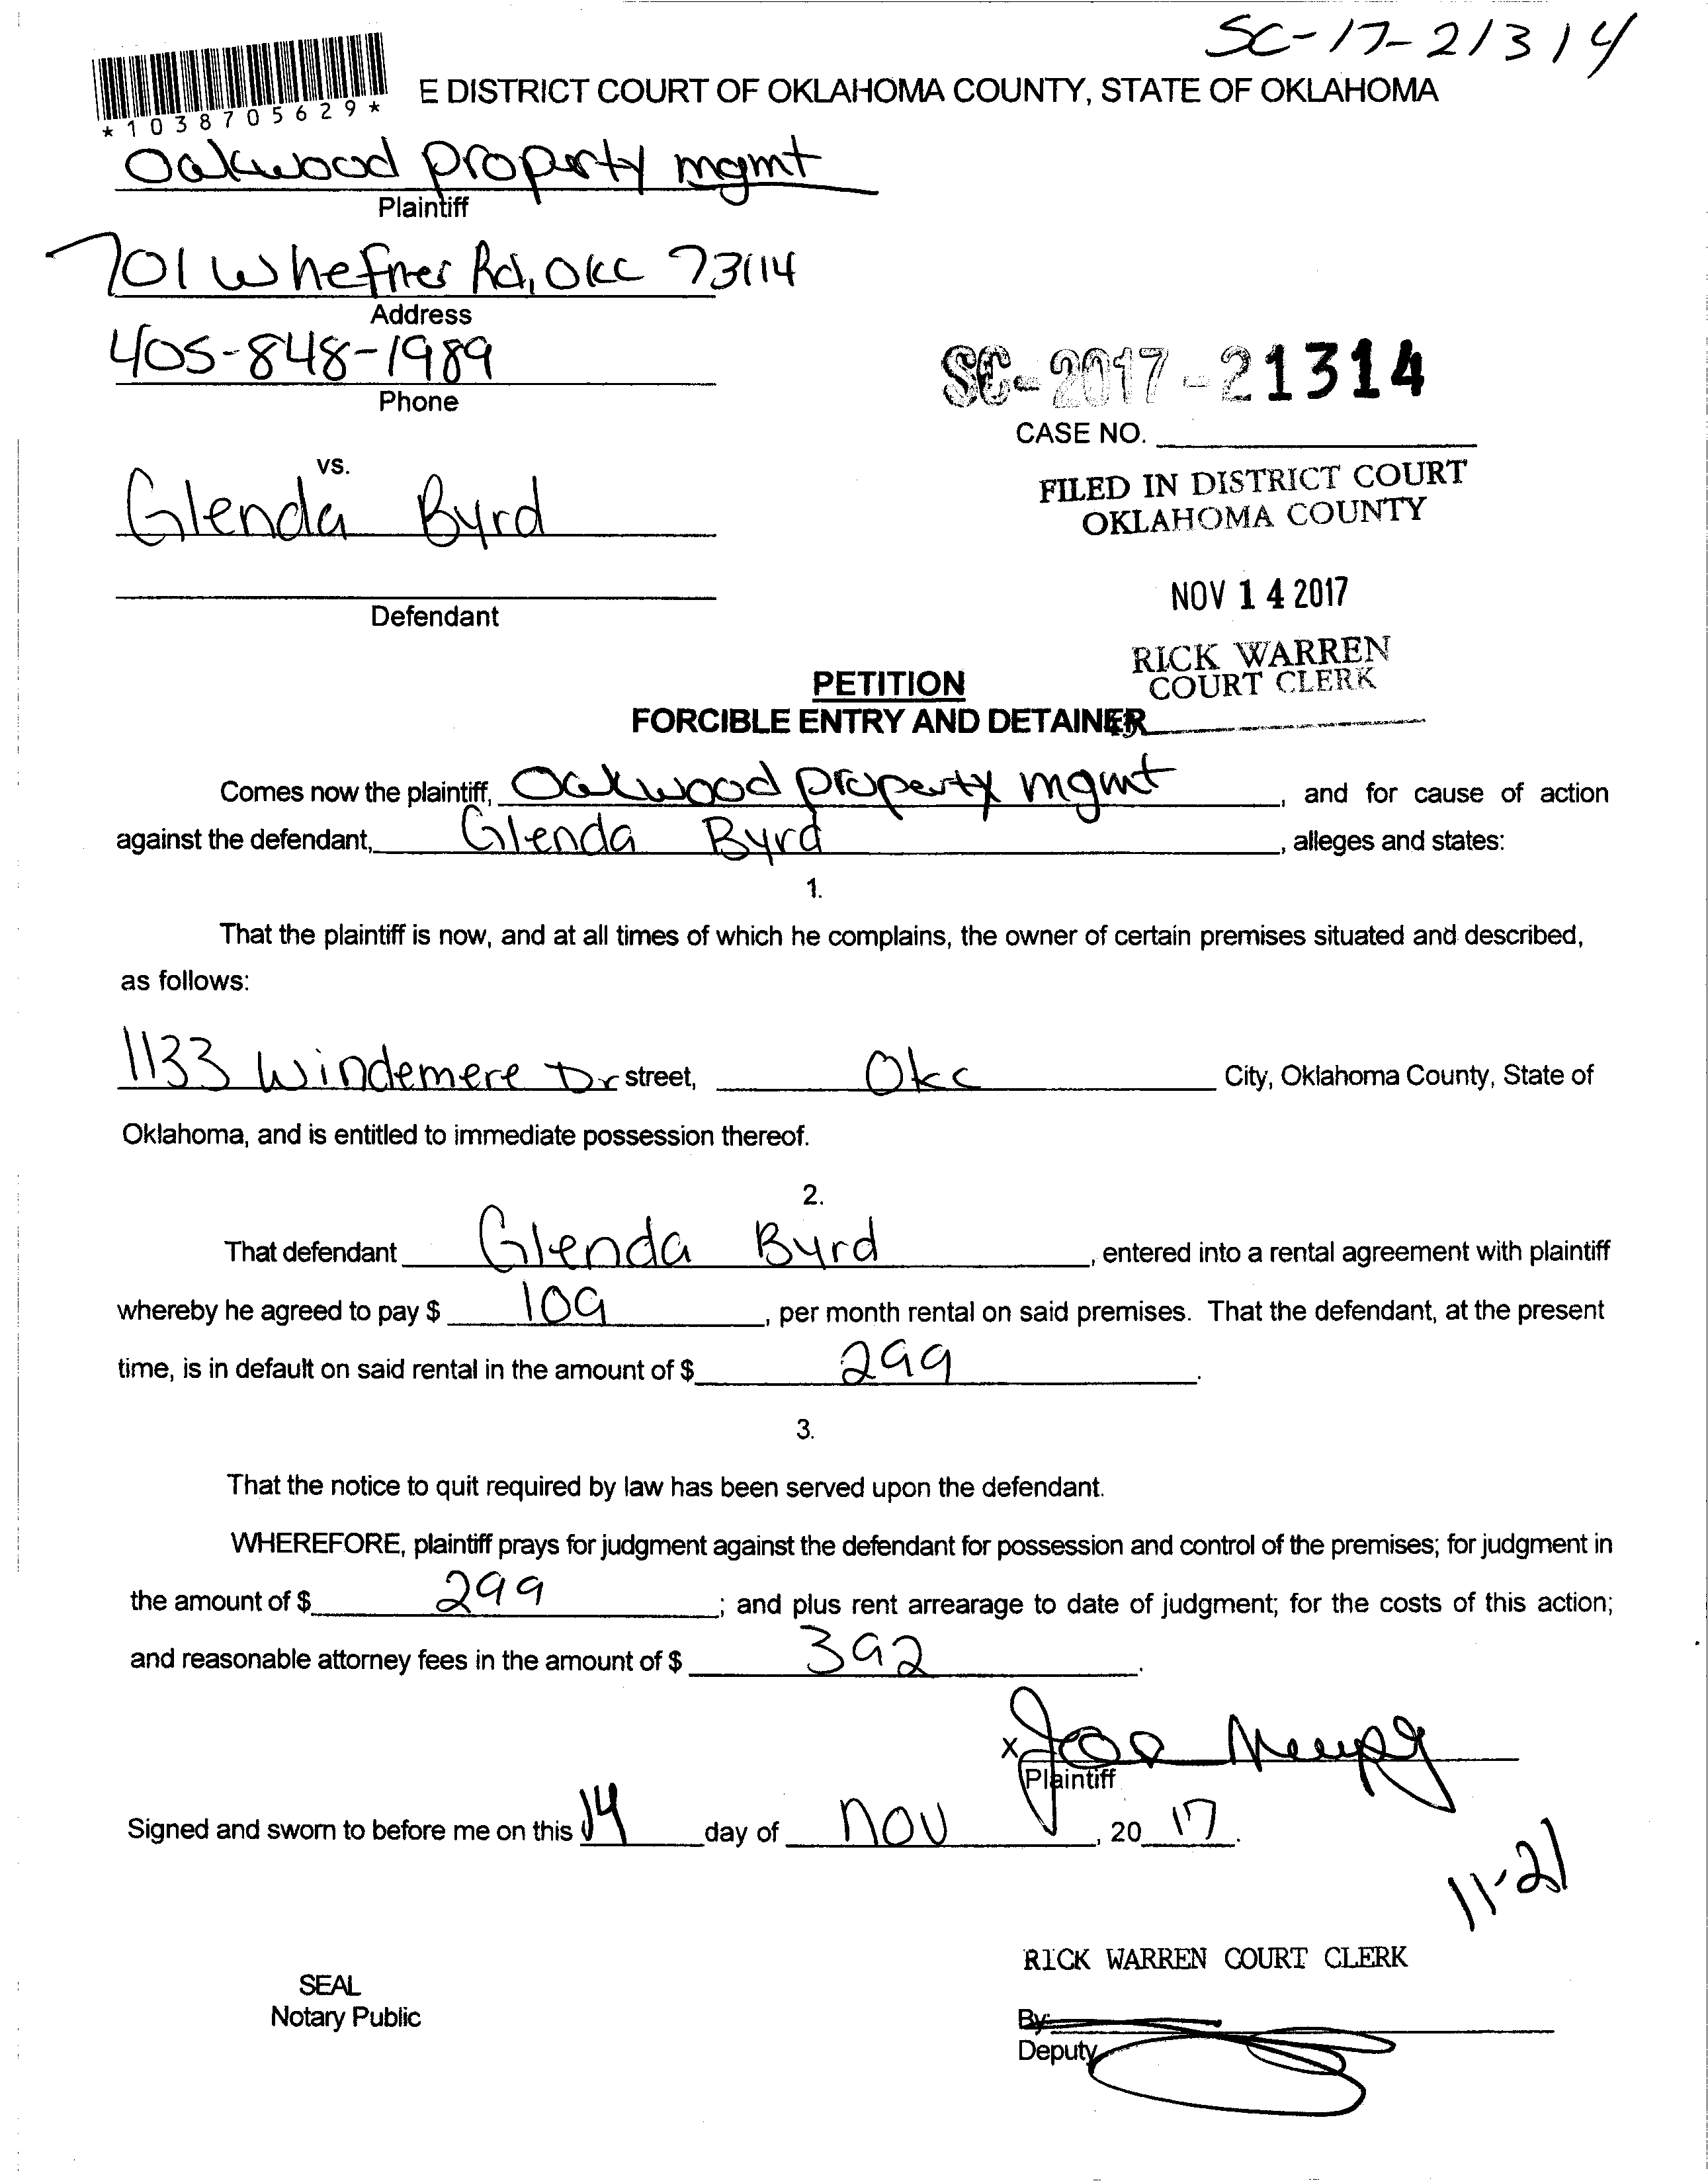 SC-17-21314
*1038705629*
E DISTRICT COURT OF OKLAHOMA COUNTY, STATE OF OKLAHOMA
Oakwood property mgmt
Plaintiff
701 W hefner Rd, OKC 73114
Address
405-848-1989
Phone
SC-2017-21314
CASE NO.
vs.
FILED IN DISTRICT COURT
OKLAHOMA COUNTY
Glenda Byrd
Defendant
NOV 14 2017
RICK WARREN
COURT CLERK
PETITION
FORCIBLE ENTRY AND DETAINER
Comes now the plaintiff, Oakwood property mgmt, and for cause of action
against the defendant, Glenda Byrd, alleges and states:
1.
That the plaintiff is now, and at all times of which he complains, the owner of certain premises situated and described,
as follows:
1133 Windemere Dr street, Okc City, Oklahoma County, State of
Oklahoma, and is entitled to immediate possession thereof.
2.
That defendant Glenda Byrd, entered into a rental agreement with plaintiff
whereby he agreed to pay $ 109, per month rental on said premises. That the defendant, at the present
time, is in default on said rental in the amount of $ 299.
3.
That the notice to quit required by law has been served upon the defendant.
WHEREFORE, plaintiff prays for judgment against the defendant for possession and control of the premises; for judgment in
the amount of $ 299; and plus rent arrearage to date of judgment; for the costs of this action;
and reasonable attorney fees in the amount of $ 392.
X
Plaintiff
Signed and sworn to before me on this 14 day of nov, 20 17.
11-21
RICK WARREN COURT CLERK
SEAL
Notary Public
By:
Deputy